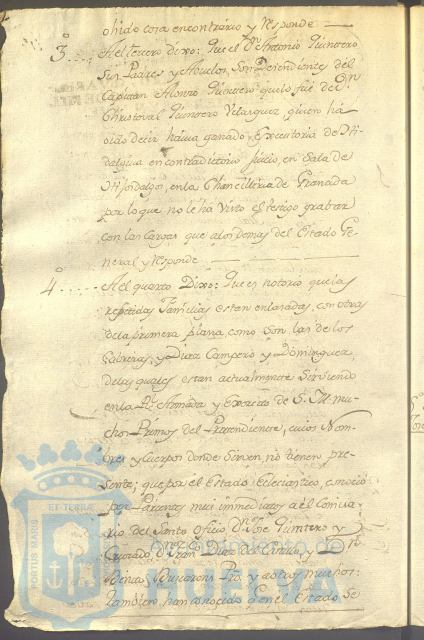 ohido cosa encontrario y Responde
3º Al tercero dixo: Que el Dn. Antonio Quintero
Sus Padres y Abuelos, Son Desendientes del
Capitan Alonzo Quintero que lo fue de Dn.
Christoval Quintero Velasquez, quien há
oido decir havia ganado Executoria de Hi
dalguia en contradictorio Juicio, en Sala de
Hijosdalgos, en la Chancilleria de Granada
por lo que no le há Visto el testigo grabar
con las Cargas que a los demas del Estado Ge
neral y Responde
4º Al quarto Dixo: Que es notorio que las
referidas Familias estan enlasadas, con otras
de la primera plana, como Son, las de los
Cabreras, y Diaz Campero, y Dominguez,
de las quales estan actualmente Sirviendo
en la Rl. Armada y Exercito de S. M. mu
chos Primos del Pretendiente, cuios Nom
bres y Cuerpos donde Sirven, no tienen pre
sente; que por el Estado Eclesiastico, conoció
por Parientes mui inmediatos a él Comisa
rio del Santo Oficio Dn. Jose Quintero y
Dn. Juan Diaz del
y otros muchos:
tambien han conocido q. en el Estado Se
PORTUS MARIS
ET TERRÆ
Ayuntamiento de
HUELVA